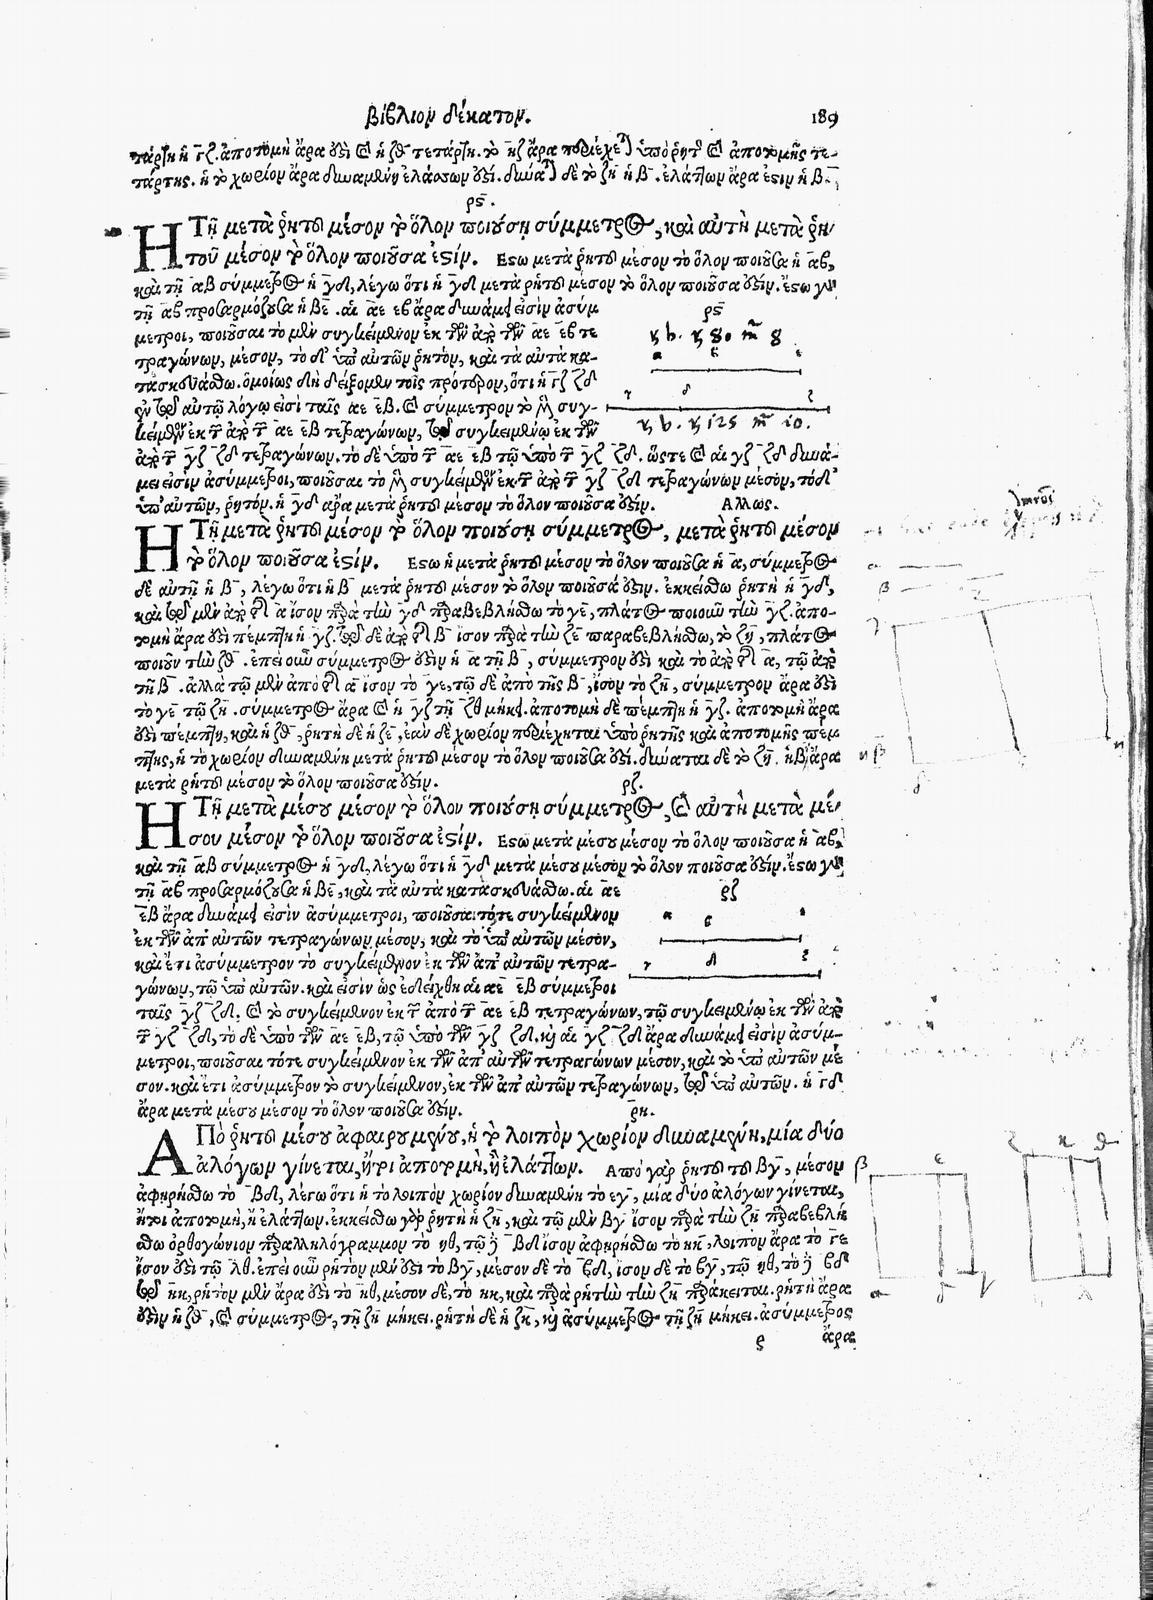 βίβλιον δέκατον. 189
τάρτη ἡ γζ. ἀποτομὴ ἄρα ἐστὶ καὶ ἡ ζθ τετάρτη. τὸ ηζ ἄρα περιέχεται ὑπὸ ῥητῆς καὶ ἀποτομῆς τε-
τάρτης. ἡ τὸ χωρίον ἄρα δυναμένη ἐλάσσων ἐστί. δύναται δὲ τὸ ζη ἡ β. ἐλάττων ἄρα ἐστὶν ἡ β.
ρς.
Η Τῇ μετὰ ῥητοῦ μέσον τὸ ὅλον ποιούσῃ σύμμετρος, καὶ αὐτὴ μετὰ ῥη
τοῦ μέσον τὸ ὅλον ποιοῦσα ἐστίν. Εστω μετὰ ῥητοῦ μέσον τὸ ὅλον ποιοῦσα ἡ αβ,
καὶ τῇ αβ σύμμετρος ἡ γδ, λέγω ὅτι ἡ γδ μετὰ ῥητοῦ μέσον τὸ ὅλον ποιοῦσα ἐστίν. ἔστω γὰρ
τῇ αβ προσαρμόζουσα ἡ βε. αἱ αε εβ ἄρα δυνάμει εἰσὶν ἀσύμ
μετροι, ποιοῦσαι τὸ μὲν συγκείμενον ἐκ τῶν ἀπὸ τῶν αε εβ τε
τραγώνων, μέσον, τὸ δ' ὑπ' αὐτῶν ῥητὸν, καὶ τὰ αὐτὰ κα-
τασκευάσθω. ὁμοίως δὴ δείξομεν τοῖς πρότερον, ὅτι ἡ γζ ζδ
ἐν τῷ αὐτῷ λόγῳ εἰσὶ ταῖς αε εβ. καὶ σύμμετρον τὸ μὲν συγ-
κείμενον ἐκ τῶν ἀπὸ τῶν αε εβ τετραγώνων, τῷ συγκειμένῳ ἐκ τῶν
ἀπὸ τῶν γζ ζδ τετραγώνων. τὸ δὲ ὑπὸ τῶν αε εβ τῷ ὑπὸ τῶν γζ ζδ. ὥστε καὶ αἱ γζ ζδ δυνά-
μει εἰσὶν ἀσύμμετροι, ποιοῦσαι τὸ μὲν συγκείμενον ἐκ τῶν ἀπὸ τῶν γζ ζδ τετραγώνων μέσον, τὸ δ'
ὑπ' αὐτῶν, ῥητόν. ἡ γδ ἄρα μετὰ ῥητοῦ μέσον τὸ ὅλον ποιοῦσα ἐστίν. Αλλως.
ρς
α β ε
γ δ ζ
Η Τῇ μετὰ ῥητοῦ μέσον τὸ ὅλον ποιούσῃ σύμμετρος, μετὰ ῥητοῦ μέσον
τὸ ὅλον ποιοῦσα ἐστίν. Εστω ἡ μετὰ ῥητοῦ μέσον τὸ ὅλον ποιοῦσα ἡ α, σύμμετρος
δὲ αὐτῇ ἡ β, λέγω ὅτι ἡ β μετὰ ῥητοῦ μέσον τὸ ὅλον ποιοῦσά ἐστιν. ἐκκείσθω ῥητὴ ἡ γδ,
καὶ τῷ μὲν ἀπὸ τῆς α ἴσον παρὰ τὴν γδ παραβεβλήσθω τὸ γε, πλάτος ποιοῦν τὴν γζ. ἀπο-
τομὴ ἄρα ἐστὶ πέμπτη ἡ γζ. τῷ δὲ ἀπὸ τῆς β ἴσον παρὰ τὴν ζε παραβεβλήσθω, τὸ ζη, πλάτος
ποιοῦν τὴν ζθ. ἐπεὶ οὖν σύμμετρος ἐστὶν ἡ α τῇ β, σύμμετρον ἐστὶ καὶ τὸ ἀπὸ τῆς α, τῷ ἀπὸ
τῇ β. ἀλλὰ τῷ μὲν ἀπὸ τῆς α ἴσον τὸ γε, τῷ δὲ ἀπὸ τῆς β, ἴσον τὸ ζη, σύμμετρον ἄρα ἐστὶ
τὸ γε τῷ ζη. σύμμετρος ἄρα καὶ ἡ γζ τῇ ζθ μήκει. ἀποτομὴ δὲ πέμπτη ἡ γζ. ἀποτομὴ ἄρα
ἐστὶ πέμπτη, καὶ ἡ ζθ, ῥητὴ δὲ ἡ ζε, ἐὰν δὲ χωρίον περιέχηται ὑπὸ ῥητῆς καὶ ἀποτομῆς πέμ
πτης, ἡ τὸ χωρίον δυναμένη μετὰ ῥητοῦ μέσον τὸ ὅλον ποιοῦσα ἐστί. δύναται δὲ τὸ ζη. ἡ β ἄρα
μετὰ ῥητοῦ μέσον τὸ ὅλον ποιοῦσα ἐστίν. ρζ.
Η Τῇ μετὰ μέσου μέσον τὸ ὅλον ποιούσῃ σύμμετρος, καὶ αὐτὴ μετὰ μέ
σου μέσον τὸ ὅλον ποιοῦσα ἐστίν. Εστω μετὰ μέσου μέσον τὸ ὅλον ποιοῦσα ἡ αβ,
καὶ τῇ αβ σύμμετρος ἡ γδ, λέγω ὅτι ἡ γδ μετὰ μέσου μέσον τὸ ὅλον ποιοῦσα ἐστίν. ἔστω γὰρ
τῇ αβ προσαρμόζουσα ἡ βε, καὶ τὰ αὐτὰ κατασκευάσθω. αἱ αε
εβ ἄρα δυνάμει εἰσὶν ἀσύμμετροι, ποιοῦσαι τότε συγκείμενον
ἐκ τῶν ἀπ' αὐτῶν τετραγώνων μέσον, καὶ τὸ ὑπ' αὐτῶν μέσον,
καὶ ἔτι ἀσύμμετρον τὸ συγκείμενον ἐκ τῶν ἀπ' αὐτῶν τετρα-
γώνων, τῷ ὑπ' αὐτῶν. καὶ εἰσὶν ὡς ἐδείχθη αἱ αε εβ σύμμετροι
ταῖς γζ ζδ. καὶ τὸ συγκείμενον ἐκ τῶν ἀπὸ τῶν αε εβ τετραγώνων, τῷ συγκειμένῳ ἐκ τῶν ἀπὸ
τῶν γζ ζδ, τὸ δὲ ὑπὸ τῶν αε εβ, τῷ ὑπὸ τῶν γζ ζδ. καὶ αἱ γζ ζδ ἄρα δυνάμει εἰσὶν ἀσύμ-
μετροι, ποιοῦσαι τότε συγκείμενον ἐκ τῶν ἀπ' αὐτῶν τετραγώνων μέσον, καὶ τὸ ὑπ' αὐτῶν μέ
σον. καὶ ἔτι ἀσύμμετρον τὸ συγκείμενον, ἐκ τῶν ἀπ' αὐτῶν τετραγώνων, τῷ ὑπ' αὐτῶν. ἡ γδ
ἄρα μετὰ μέσου μέσον τὸ ὅλον ποιοῦσα ἐστίν. ρη.
ρζ
α β ε
γ δ ζ
Α Πὸ ῥητοῦ μέσου ἀφαιρουμένου, ἡ τὸ λοιπὸν χωρίον δυναμένη, μία δύο
ἀλόγων γίνεται, ἤτοι ἀποτομὴ, ἢ ἐλάττων. Απὸ γὰρ ῥητοῦ τοῦ βγ, μέσον
ἀφῃρήσθω τὸ βδ, λέγω ὅτι ἡ τὸ λοιπὸν χωρίον δυναμένη τὸ εγ, μία δύο ἀλόγων γίνεται,
ἤτοι ἀποτομὴ, ἢ ἐλάττων. ἐκκείσθω γὰρ ῥητὴ ἡ ζη, καὶ τῷ μὲν βγ ἴσον παρὰ τὴν ζη παραβεβλή
σθω ὀρθογώνιον παραλληλόγραμμον τὸ ηθ, τῷ δὲ βδ ἴσον ἀφῃρήσθω τὸ ηκ, λοιπὸν ἄρα τὸ γε
ἴσον ἐστὶ τῷ λθ. ἐπεὶ οὖν ῥητὸν μὲν ἐστὶ τὸ βγ, μέσον δὲ τὸ βδ, ἴσον δὲ τὸ βγ, τῷ ηθ, τὸ δὲ βδ
τῷ ηκ, ῥητὸν μὲν ἄρα ἐστὶ τὸ ηθ, μέσον δὲ, τὸ ηκ, καὶ παρὰ ῥητὴν τὴν ζη παράκειται. ῥητὴ ἄρα
ἐστὶν ἡ ζθ, καὶ σύμμετρος, τῇ ζη μήκει. ῥητὴ δὲ ἡ ζκ, καὶ ἀσύμμετρος τῇ ζη μήκει. ἀσύμμετρος
ς ἄρα